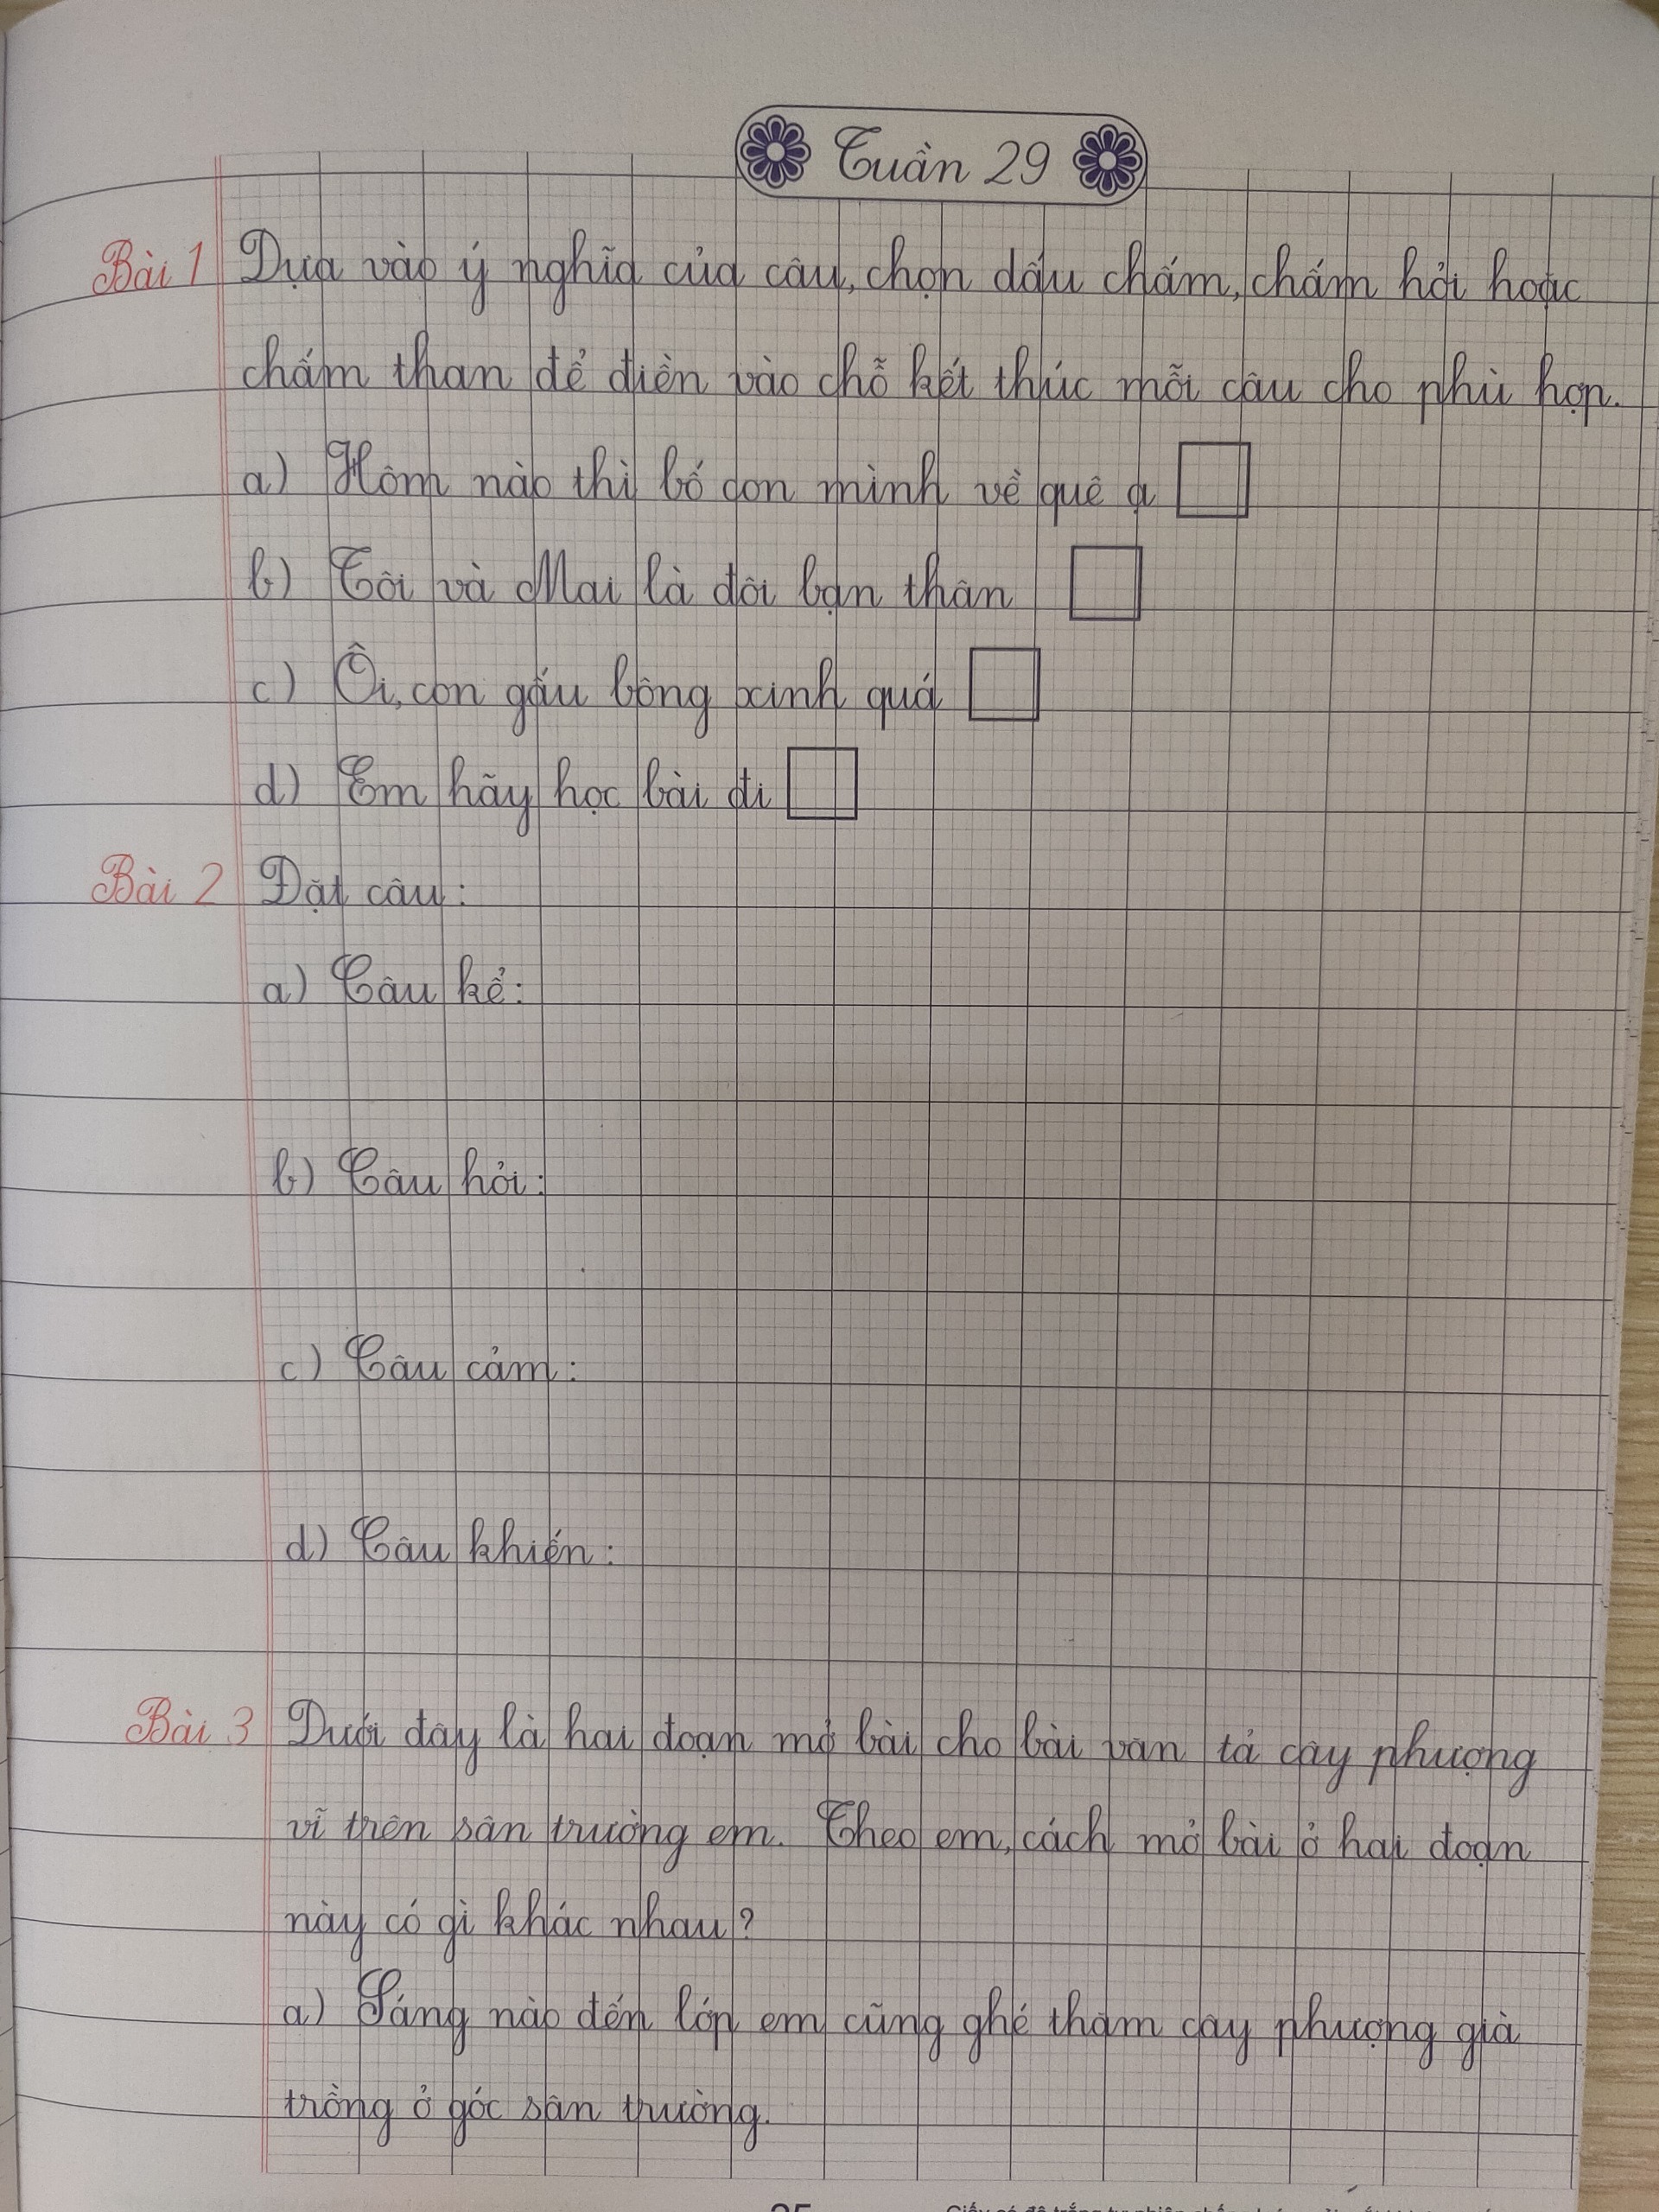 Tuần 29
Bài 1 Dựa vào ý nghĩa của câu, chọn dấu chấm, chấm hỏi hoặc
chấm than để điền vào chỗ kết thúc mỗi câu cho phù hợp.
a) Hôm nào thì bố con mình về quê ạ
b) Tôi và Mai là đôi bạn thân
c) Ôi, con gấu bông xinh quá
d) Em hãy học bài đi
Bài 2 Đặt câu:
a) Câu kể:
b) Câu hỏi:
c) Câu cảm:
d) Câu khiến:
Bài 3 Dưới đây là hai đoạn mở bài cho bài văn tả cây phượng
vĩ trên sân trường em. Theo em, cách mở bài ở hai đoạn
này có gì khác nhau?
a) Sáng nào đến lớp em cũng ghé thăm cây phượng già
trồng ở góc sân trường.